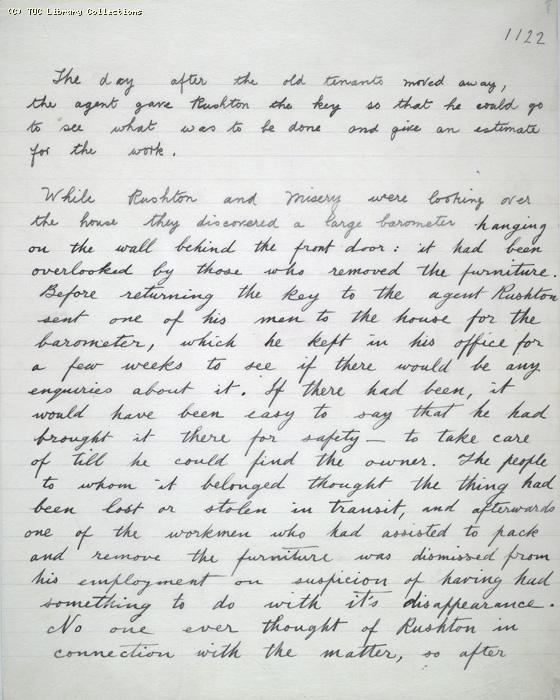 (C) TUC Library Collections
1122
The day after the old tenants moved away,
the agent gave Rushton the key so that he could go
to see what was to be done and give an estimate
for the work.
While Rushton and Misery were looking over
the house they discovered a large barometer hanging
on the wall behind the front door: it had been
overlooked by those who removed the furniture.
Before returning the key to the agent Rushton
sent one of his men to the house for the
barometer, which he kept in his office for
a few weeks to see if there would be any
enquiries about it. If there had been, it
would have been easy to say that he had
brought it there for safety — to take care
of till he could find the owner. The people
to whom it belonged thought the thing had
been lost or stolen in transit, and afterwards
one of the workmen who had assisted to pack
and remove the furniture was dismissed from
his employment on suspicion of having had
something to do with it's disappearance.
No one ever thought of Rushton in
connection with the matter, so after